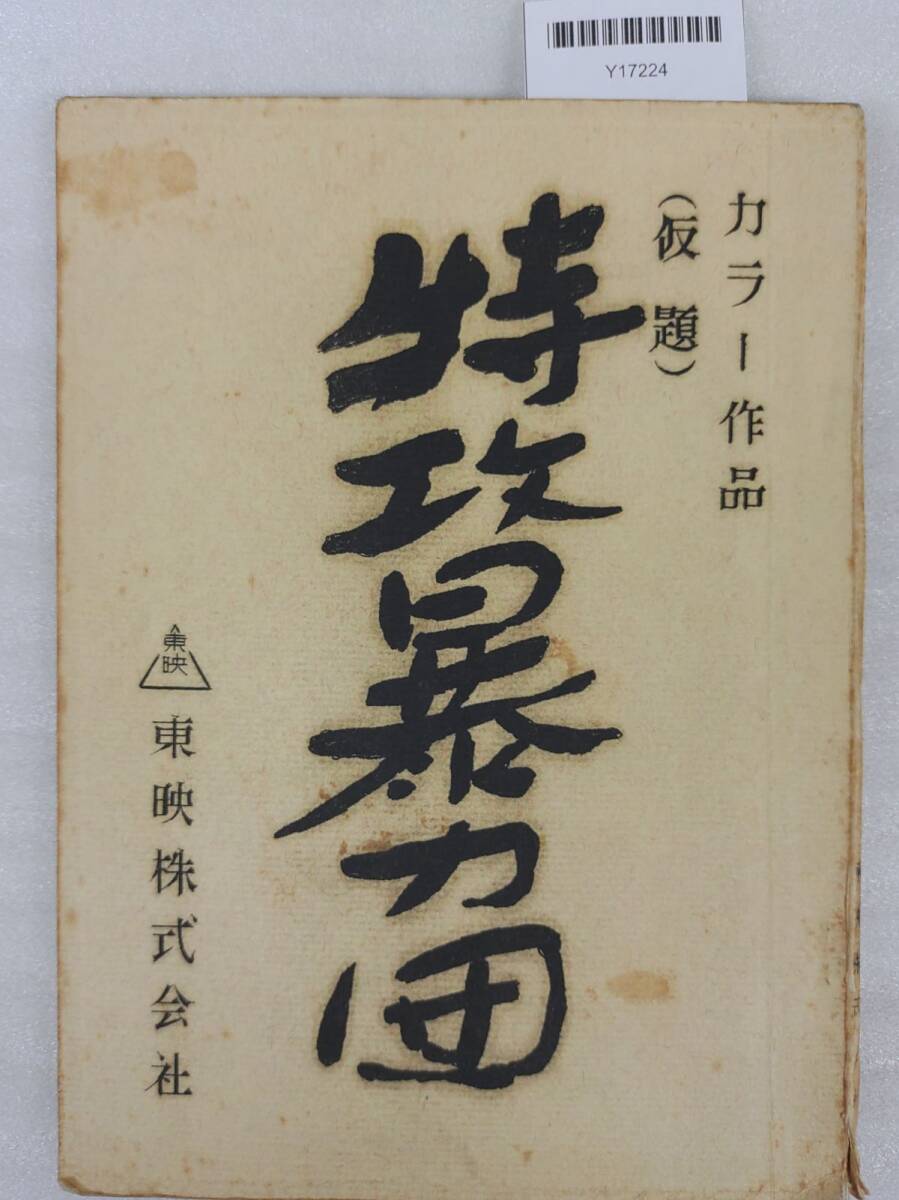 Y17224
カラー作品
（仮題）
特攻暴力団
東映
東映株式会社